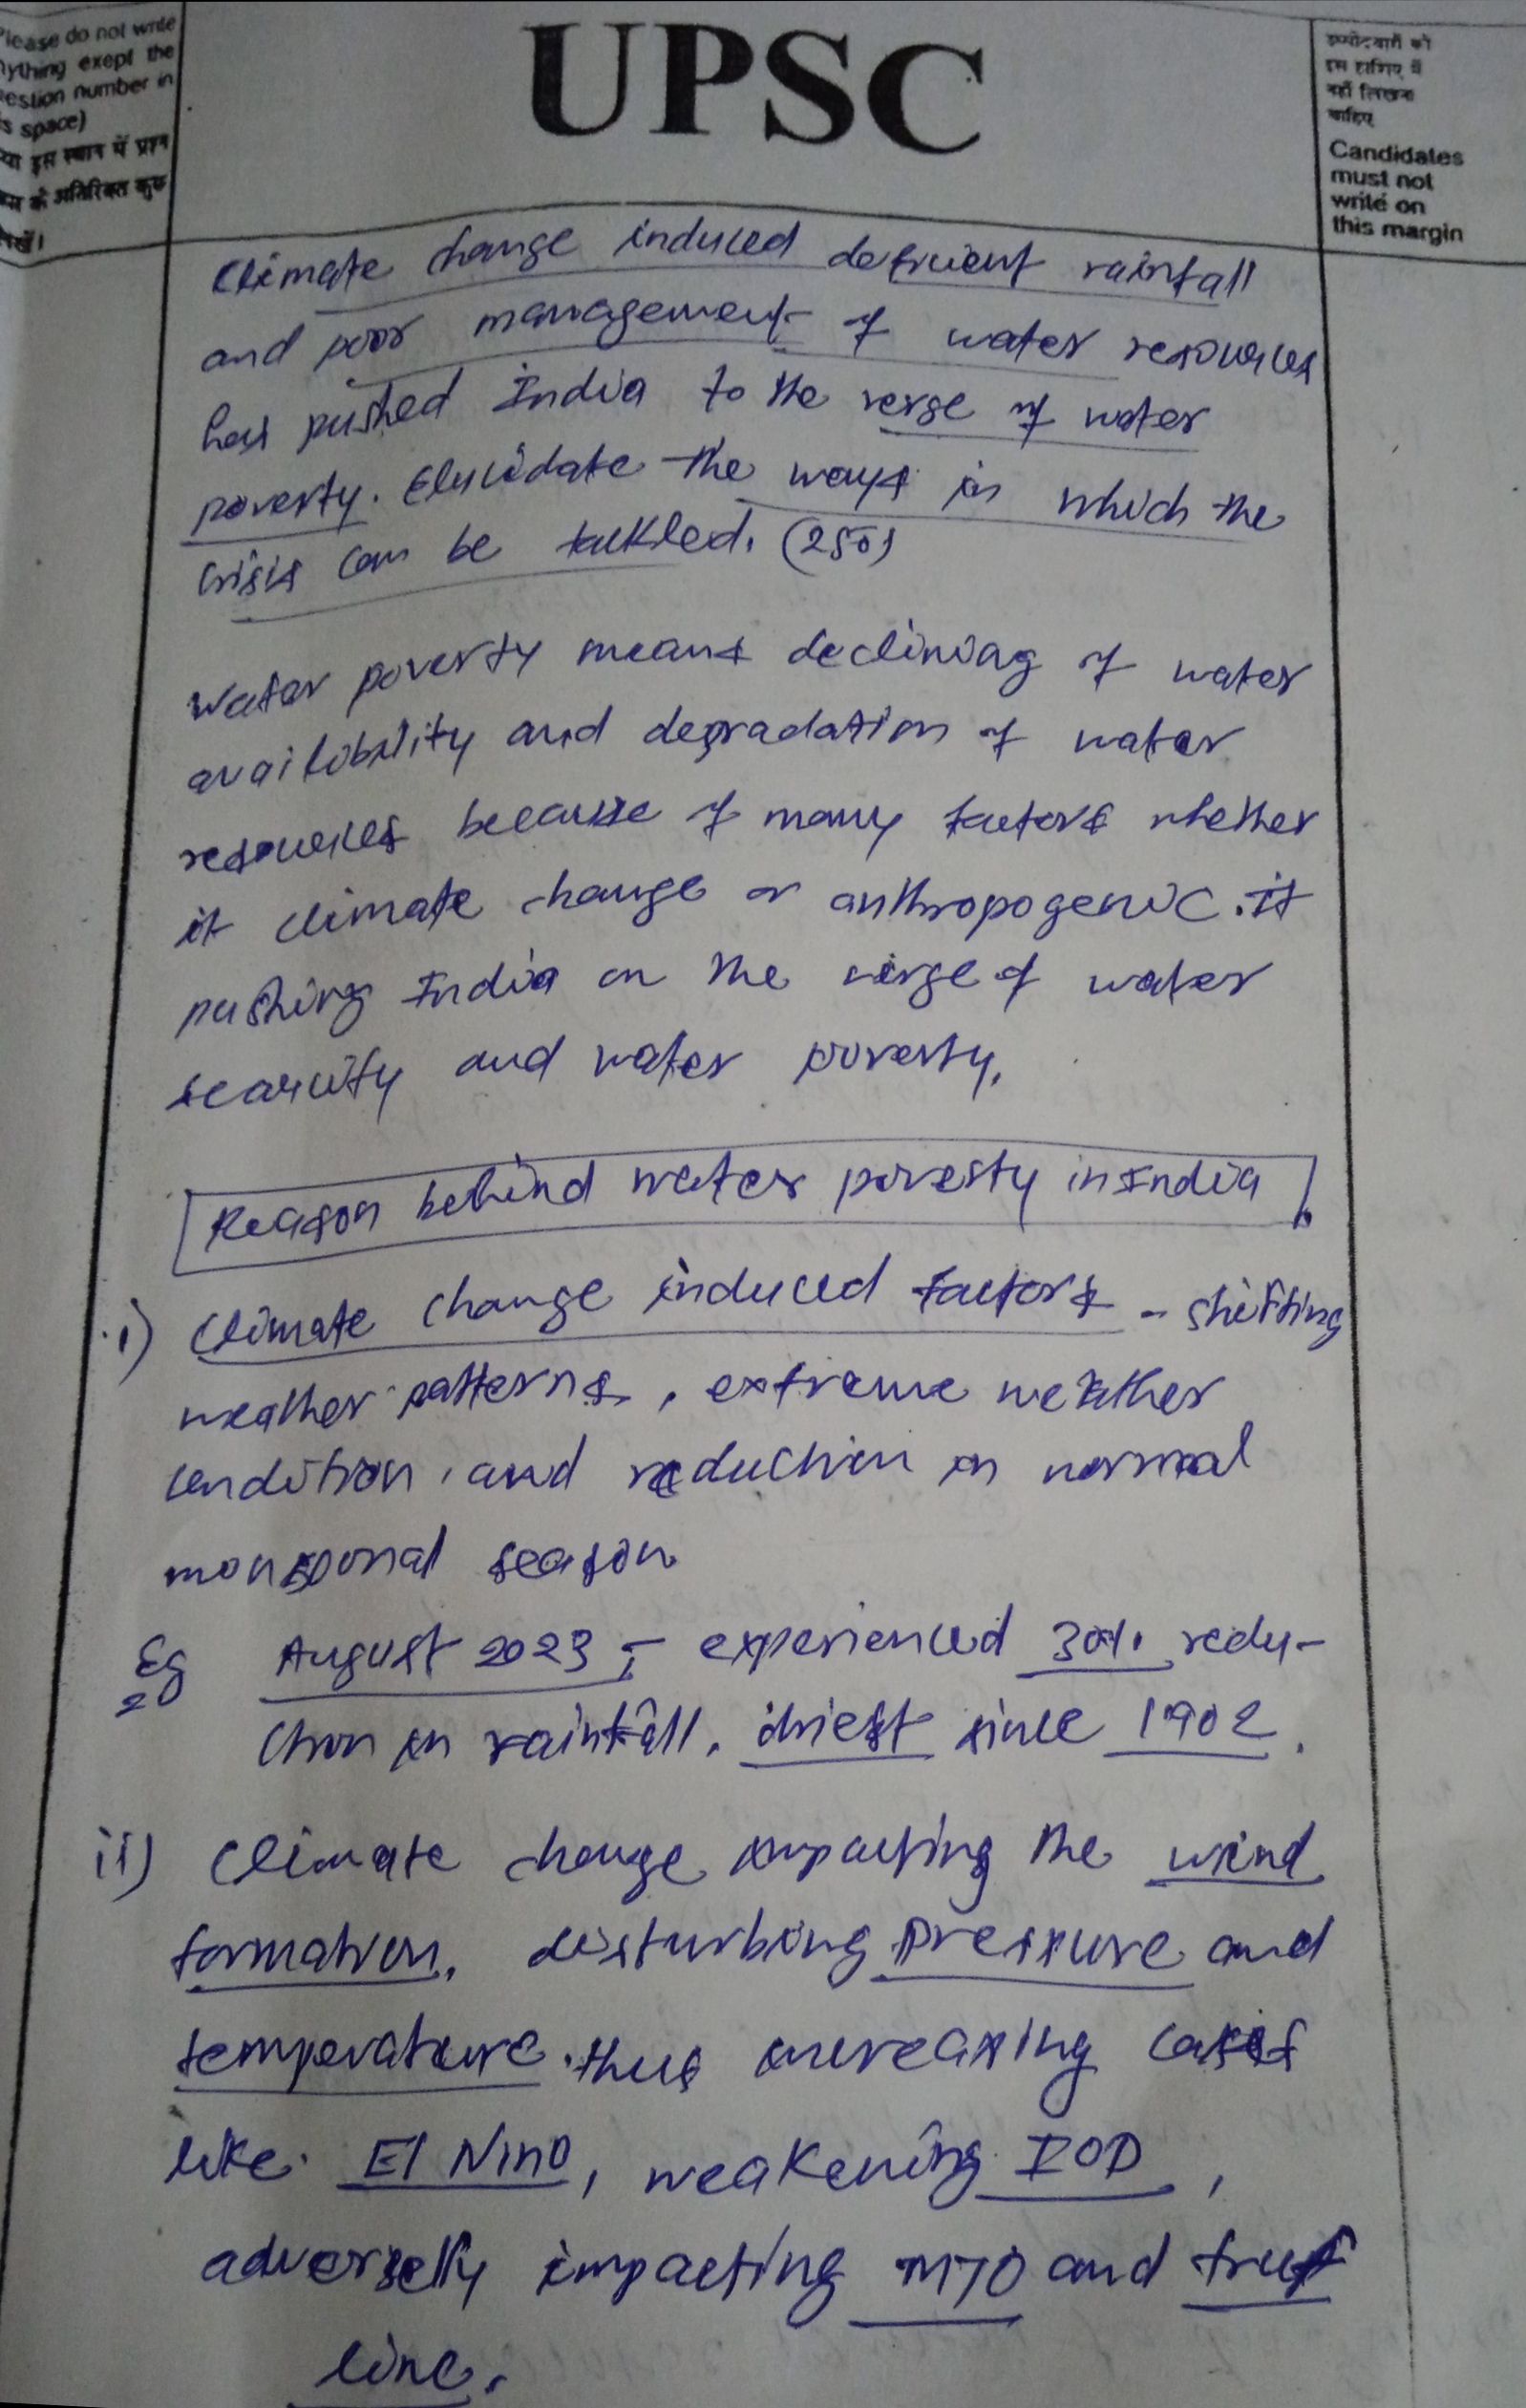 UPSC
Please do not write
anything exept the
question number in
this space)
या इस स्थान में प्रश्न
के अतिरिक्त कुछ
उम्मीदवारों को
इस हाशिए में
नहीं लिखना
चाहिए
Candidates
must not
write on
this margin
Climate change induced deficient rainfall
and poor management of water resources
has pushed India to the verge of water
poverty. Elucidate the ways in which the
crisis can be tackled. (250)
Water poverty means declining of water
availability and degradation of water
resources because of many factors whether
it climate change or anthropogenic. it
pushing India on the verge of water
scarcity and water poverty.
Reason behind water poverty in India
i) Climate change induced factors - shifting
weather patterns, extreme weather
condition, and reduction in normal
monsoonal season
Eg August 2023 - experienced 30% redu-
ction in rainfall, driest since 1902.
ii) Climate change impacting the wind
formation, disturbing pressure and
temperature. thus increasing cases
like El Nino, weakening IOD,
adversely impacting MJO and
line.